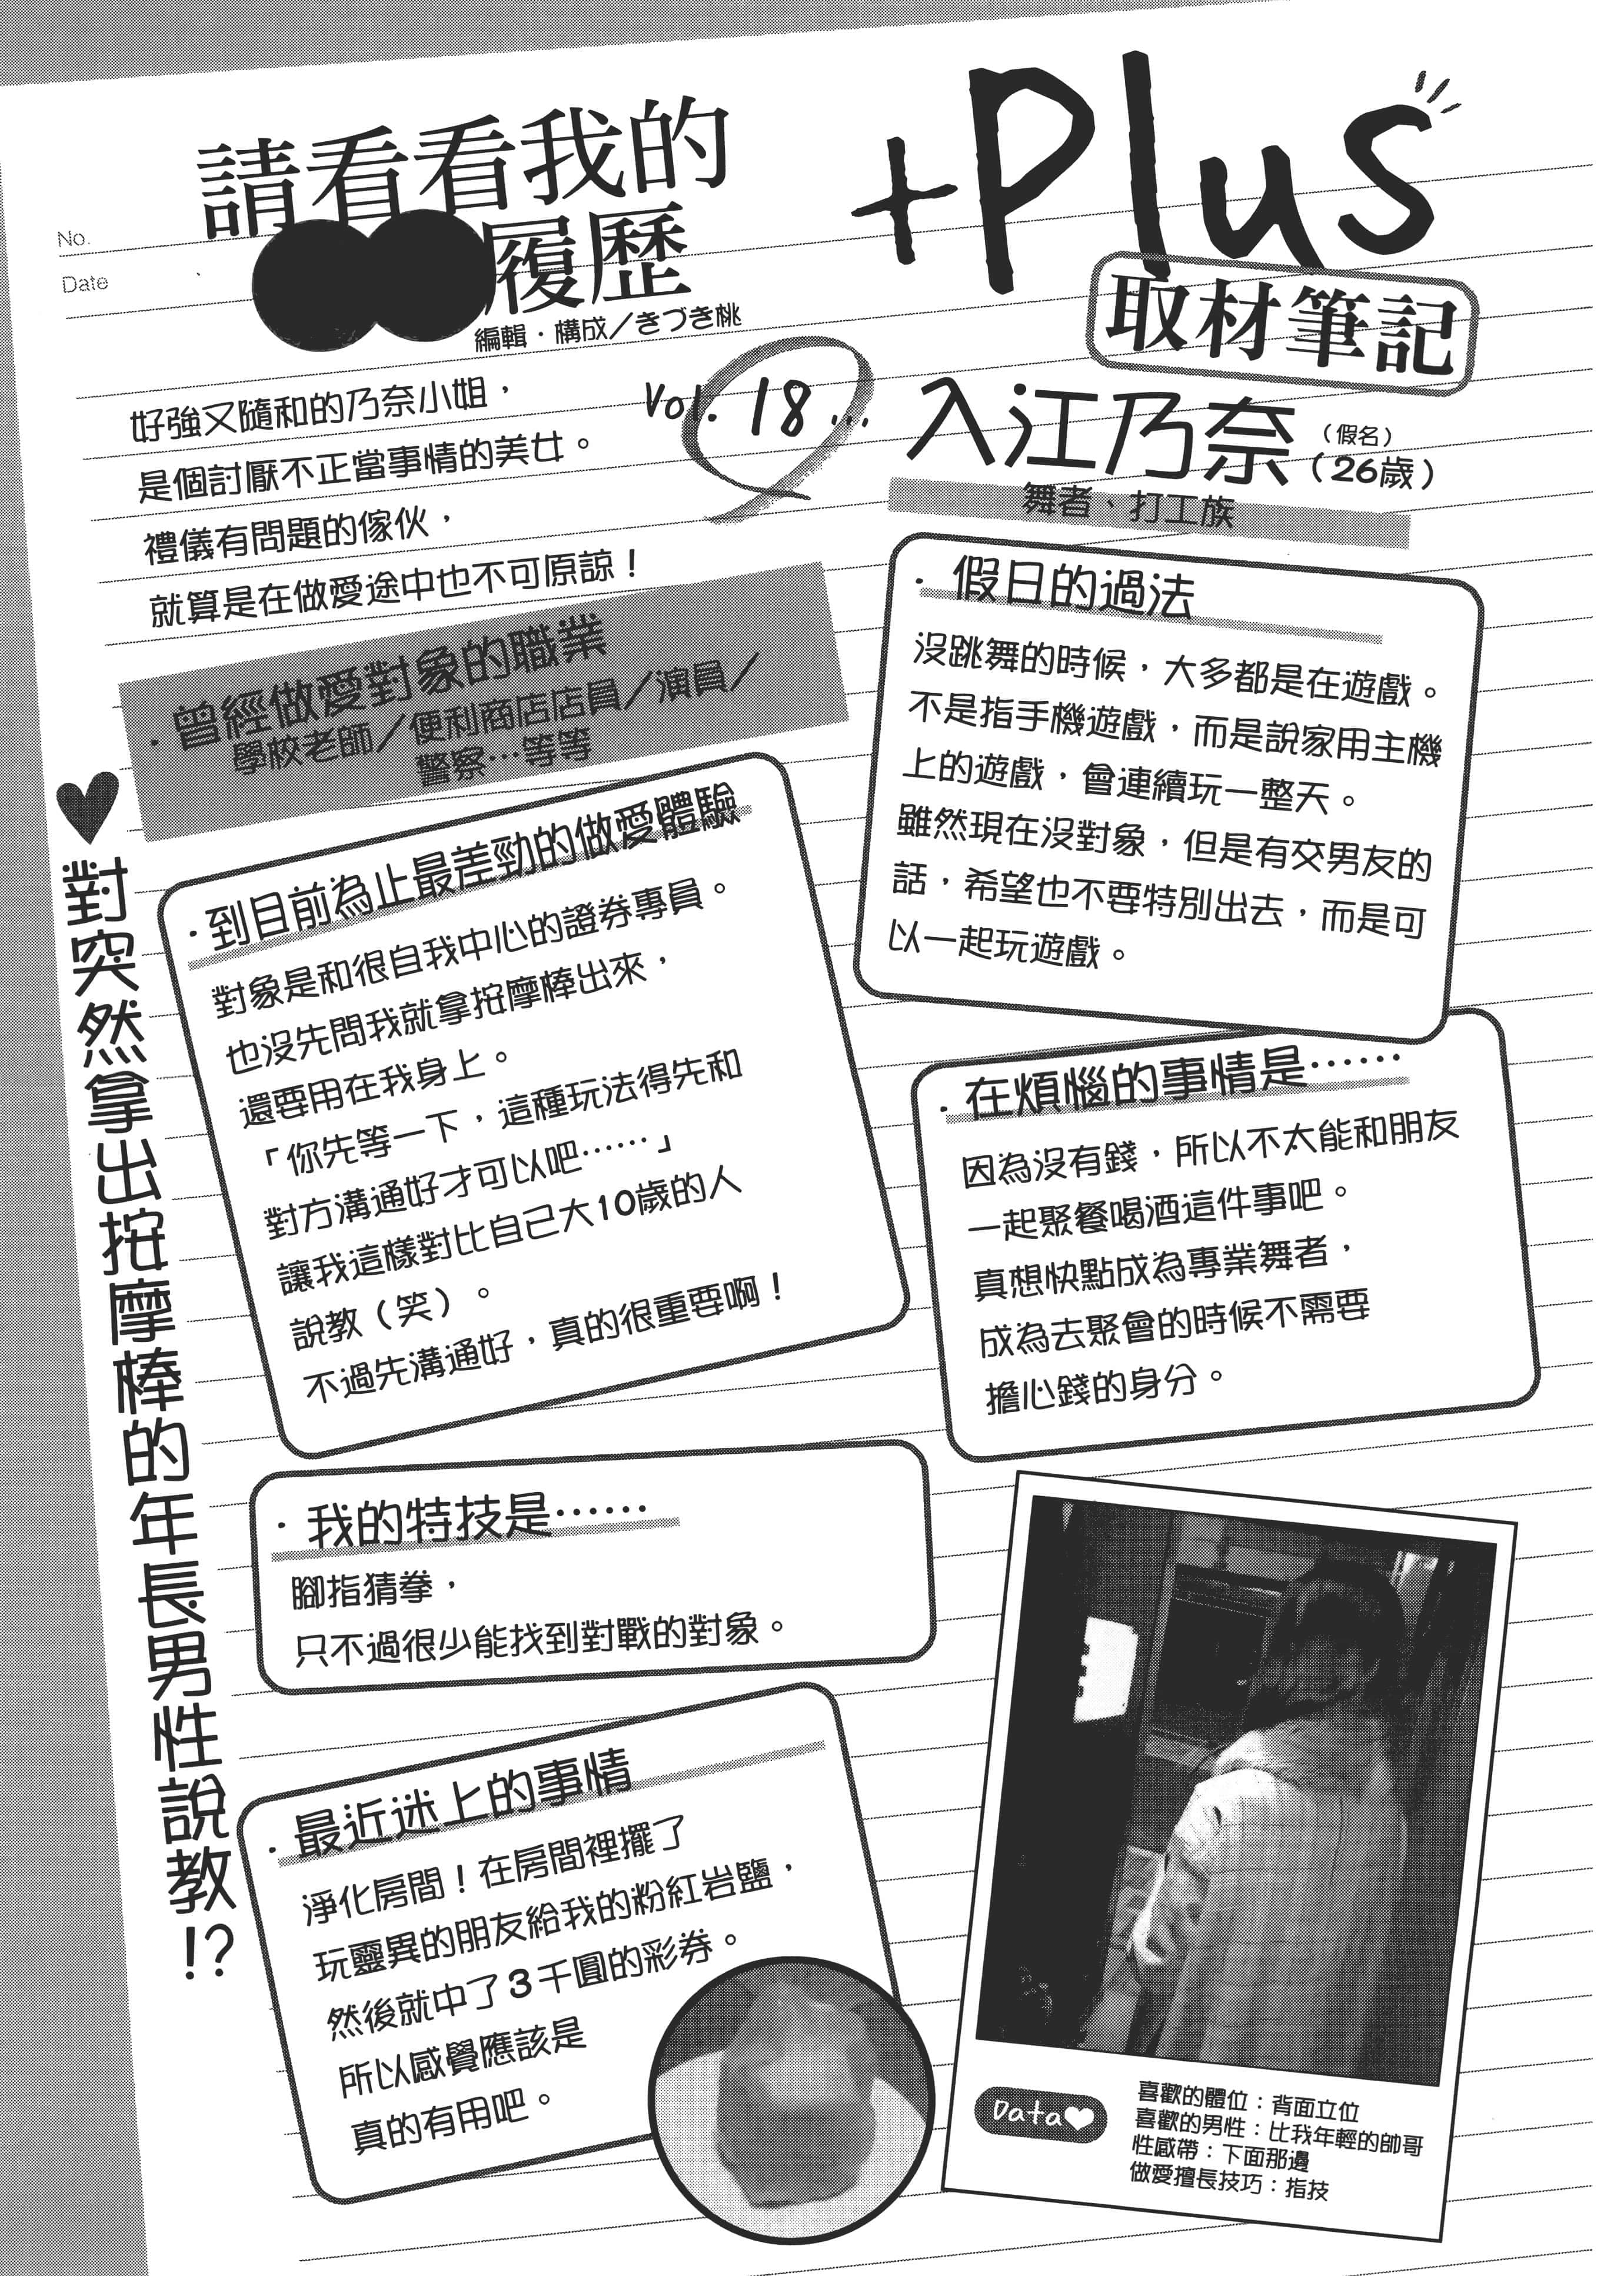 請看看我的
●●履歷
編輯・構成／きづき桃
+Plus
取材筆記
No.
Date
好強又隨和的乃奈小姐，
是個討厭不正當事情的美女。
禮儀有問題的傢伙，
就算是在做愛途中也不可原諒！
Vol. 18...
入江乃奈
（假名）
（26歲）
舞者、打工族
・曾經做愛對象的職業
學校老師／便利商店店員／演員／
警察…等等
・假日的過法
沒跳舞的時候，大多都是在遊戲。
不是指手機遊戲，而是說家用主機
上的遊戲，會連續玩一整天。
雖然現在沒對象，但是有交男友的
話，希望也不要特別出去，而是可
以一起玩遊戲。
♥對突然拿出按摩棒的年長男性說教!?
・到目前為止最差勁的做愛體驗
對象是和很自我中心的證券專員。
也沒先問我就拿按摩棒出來，
還要用在我身上。
「你先等一下，這種玩法得先和
對方溝通好才可以吧……」
讓我這樣對比自己大10歲的人
說教（笑）。
不過先溝通好，真的很重要啊！
・在煩惱的事情是……
因為沒有錢，所以不太能和朋友
一起聚餐喝酒這件事吧。
真想快點成為專業舞者，
成為去聚會的時候不需要
擔心錢的身分。
・我的特技是……
腳指猜拳，
只不過很少能找到對戰的對象。
・最近迷上的事情
淨化房間！在房間裡擺了
玩靈異的朋友給我的粉紅岩鹽，
然後就中了3千圓的彩券。
所以感覺應該是
真的有用吧。
Data♥
喜歡的體位：背面立位
喜歡的男性：比我年輕的帥哥
性感帶：下面那邊
做愛擅長技巧：指技